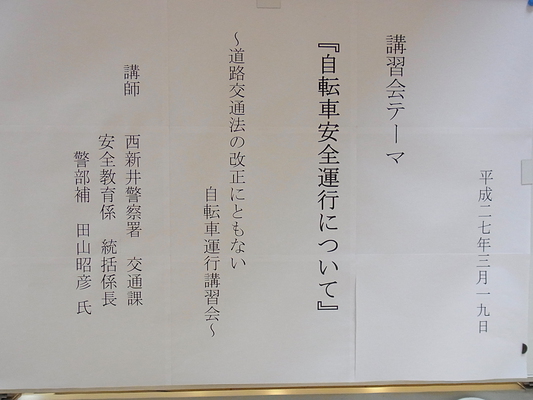 平成二七年三月一九日
講習会テーマ
『自転車安全運行について』
~道路交通法の改正にともない
自転車運行講習会~
講師 西新井警察署 交通課
安全教育係 統括係長
警部補 田山昭彦 氏